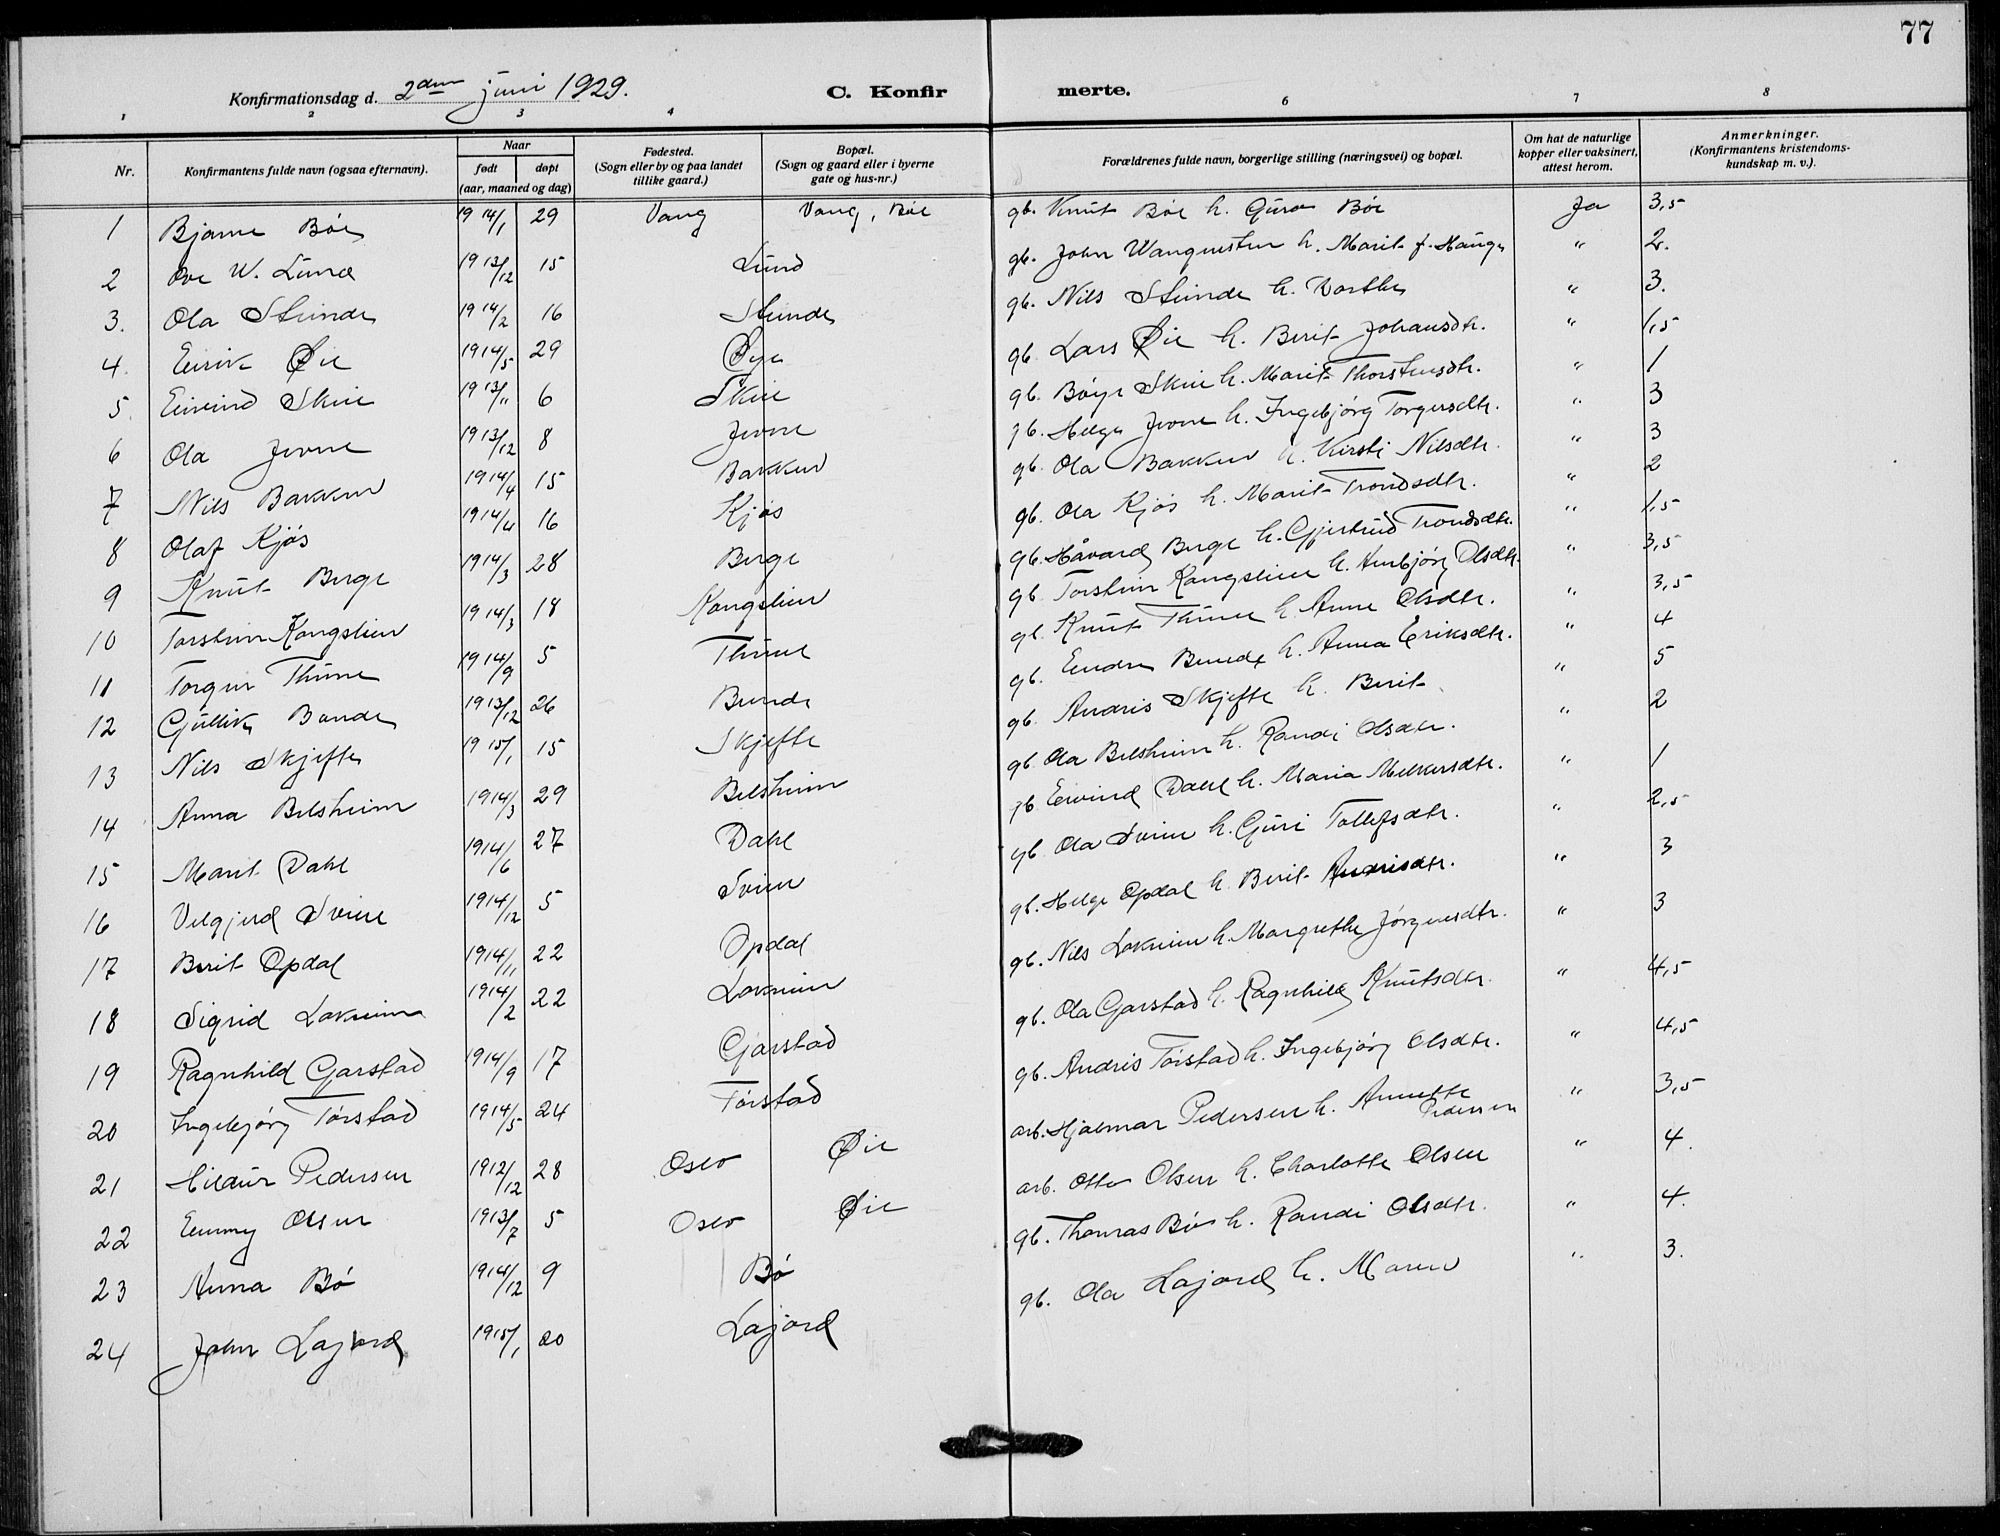 77
Konfirmationsdag d. 2den juni 1929. C. Konfirmerte.
1 2 3 4 6 7 8
Nr. Konfirmantens fulde navn (ogsaa efternavn). Naar født døpt (aar, maaned og dag) Fødested. (Sogn eller by og paa landet tillike gaard.) Bopæl. (Sogn og gaard eller i byerne gate og hus-nr.) Forældrenes fulde navn, borgerlige stilling (næringsvei) og bopæl. Om hat de naturlige kopper eller vaksinert, attest herom. Anmerkninger. (Konfirmantens kristendoms-kundskap m. v.).
1 Bjarne Bøe 1914/1 29 Vang Vang, Bøe gb. Knut Bøe h. Guro Bøe Ja 3,5
2 Ove W. Lund 1913/12 15 Lund gb. John Wangensten h. Marit f. Hauge " 2.
3. Ola Stende 1914/2 16 Stende gb. Nils Stende h. Barthe " 3.
4. Eirik Øie 1914/5 29 Øye gb. Lars Øie h. Berit Johansdtr. " 1,5
5. Eivind Skeie 1913/11 6 Skeie gb. Bøye Skeie h. Marit Thorstensdtr. " 1
6 Ola Jevne 1913/12 8 Jevne gb. Helge Jevne h. Ingebjørg Torgersdtr. " 3
7 Nils Bakken 1914/4 15 Bakken gb. Ola Bakken h. Kirsti Nilsdtr. " 3
8 Olaf Kjøs 1914/4 16 Kjøs gb. Ola Kjøs h. Marit Trondsdtr. " 2
9 Knut Berge 1914/3 28 Berge gb. Håvard Berge h. Gjertrud Trondsdtr. " 1,5
10 Torstein Kongslien 1914/3 18 Kongslien gb. Torstein Kongslien h. Ambjørg Olsdtr. " 3,5
11 Torger Thune 1914/9 5 Thune gb. Knut Thune h. Anne Olsdtr. " 3,5
12 Gullik Bunde 1913/12 26 Bunde gb. Endre Bunde h. Anna Eriksdtr. " 4
13 Nils Skjefte 1915/1 15 Skjefte gb. Andris Skjefte h. Berit " 5
14 Anna Belsheim 1914/3 29 Belsheim gb. Ola Belsheim h. Randi Olsdtr. " 2
15 Marit Dahl 1914/6 27 Dahl gb Eivind Dahl h. Maria Melkersdtr. " 1
16 Velgjerd Sveen 1914/12 5 Sveen gb. Ola Sveen h. Guri Tollefsdtr. " 2,5
17 Berit Opdal 1914/11 22 Opdal gb. Helge Opdal h. Berit Andrisdtr. " 3
18 Sigrid Lokreim 1914/2 22 Lokreim gb. Nils Lokreim h. Margrethe Jørgensdtr. " 3
19 Ragnhild Garstad 1914/9 17 Garstad gb. Ola Garstad h. Ragnhild Knutsdtr. " 4,5
20 Ingebjørg Tørstad 1914/5 24 Tørstad gb. Andris Tørstad h. Ingebjørg Olsdtr. " 4,5
21 Hildur Pedersen 1912/12 28 Oslo Øie arb. Hjalmar Pedersen h. Annette Pedersen " 3,5
22 Emmy Olsen 1913/7 5 Oslo Øie arb. Otto Olsen h. Charlotte Olsen " 4.
23 Anna Bø 1914/12 9 Bø gb. Thomas Bø h. Randi Olsdtr. " 4.
24 John Lajord 1915/1 20 Lajord gb. Ola Lajord h. Maren " 3.